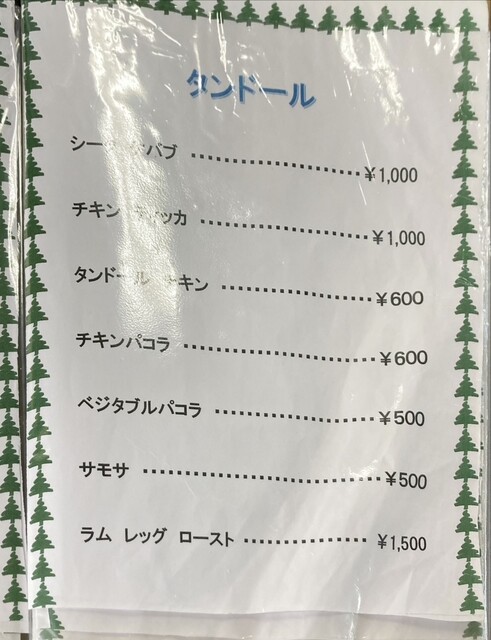 タンドール
シークカバブ ‥‥‥‥‥‥‥‥‥‥ ¥1,000
チキン ティッカ ‥‥‥‥‥‥‥‥‥‥ ¥1,000
タンドール チキン ‥‥‥‥‥‥‥‥‥ ¥600
チキンパコラ ‥‥‥‥‥‥‥‥‥‥‥ ¥600
ベジタブルパコラ ‥‥‥‥‥‥‥‥‥ ¥500
サモサ ‥‥‥‥‥‥‥‥‥‥‥‥‥ ¥500
ラム レッグ ロースト ‥‥‥‥‥‥‥ ¥1,500